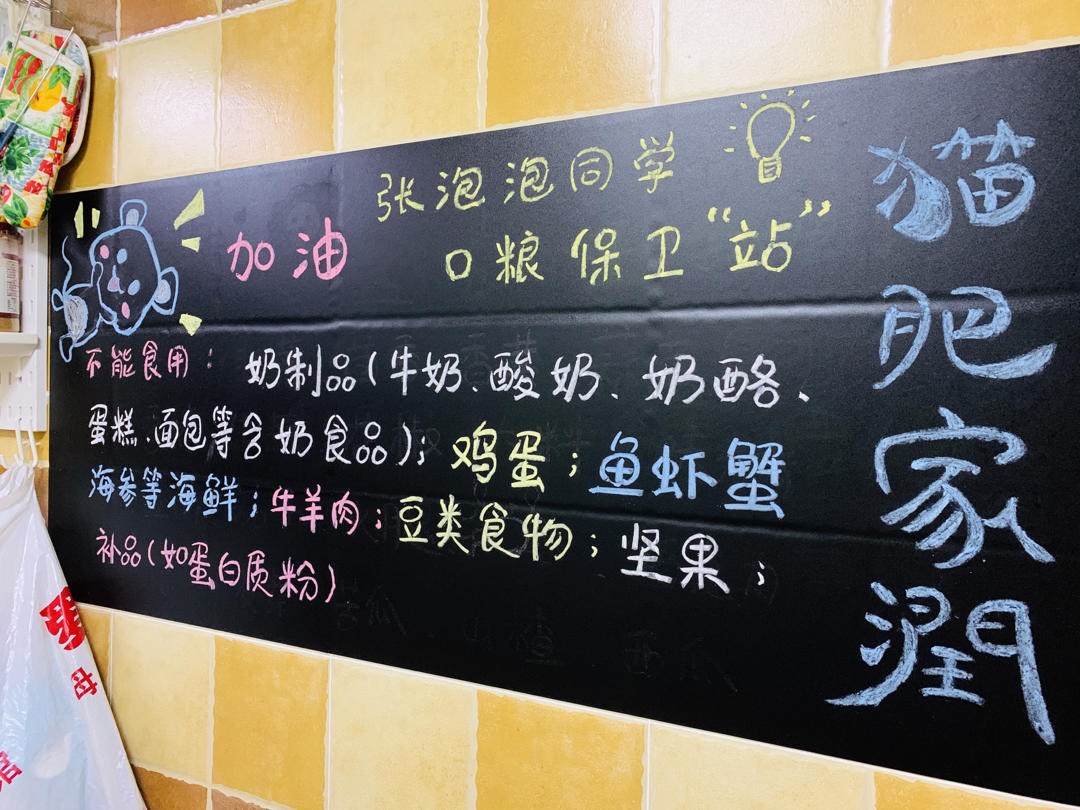 张泡泡同学
加油
口粮保卫“站”
不能食用：奶制品(牛奶、酸奶、奶酪、
蛋糕、面包等含奶食品)；鸡蛋；鱼虾蟹
海参等海鲜；牛羊肉；豆类食物；坚果；
补品(如蛋白质粉)
猫肥家潤